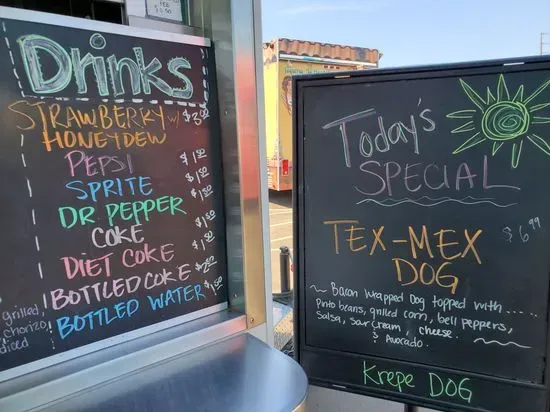 Drinks
STRAWBERRY w/ $3
HONEYDEW
PEPSI $1.50
SPRITE $1.50
DR. PEPPER $1.50
COKE $1.50
DIET COKE $1.50
BOTTLED COKE $2.50
BOTTLED WATER $1.50
grilled,
chorizo,
diced
Today's
SPECIAL
TEX-MEX $6.99
DOG
~ Bacon wrapped Dog topped with....
Pinto beans, grilled corn, bell peppers,
Salsa, Sour cream, cheese.
& Avocado.
Krepe DOG